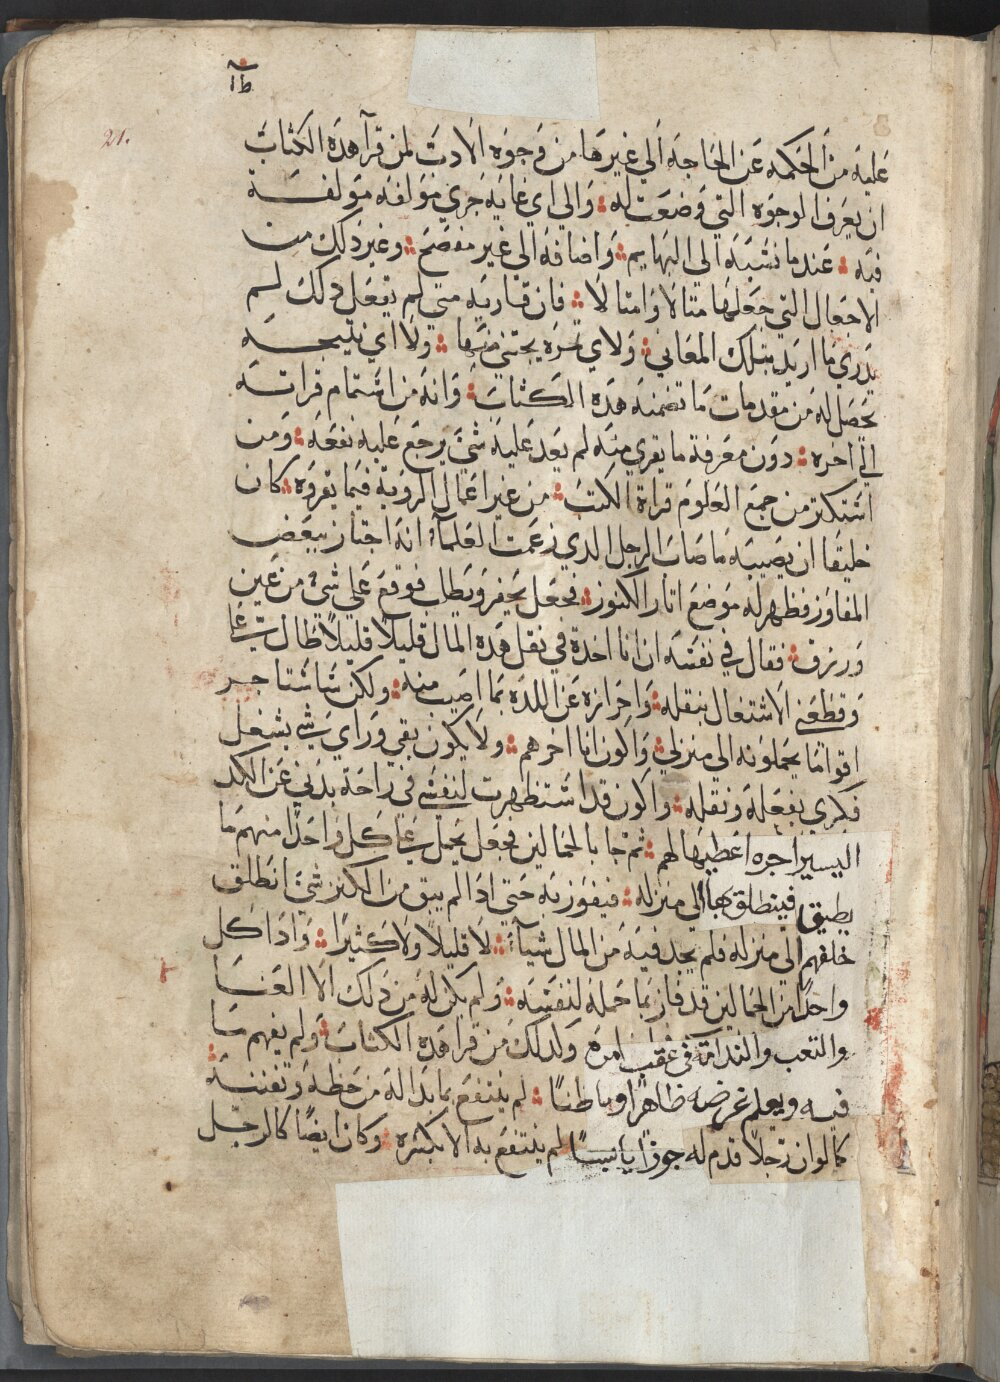 21.
عليه من الحكمه عن الحاجه الي غيرها من وجوه الادب لمن قرآ هده الكتاب
ان يعرف الوجوه التي وضعت له والي اي غايه جري مؤلفه مولفة
فيه عند ما نسبه الي البهايم واضافه الي غير مفصح وغير دلك من
الاجعال التي جعلها مثالا وامثالا فان قاريه متي لم يفعل دلك لم
يدري ما اريد بتلك المعاني ولا اي ثمره يجتني منها ولا اي نتيجه
تحصل له من مقدمات ما تضمنه هده الكتاب وانه من استمام قراته
الي اخره دون معرفة ما يقري منه لم يعد عليه شي يرجع عليه نفعه ومن
استكثر من جمع العلوم قراة الكتب من غير اعمال الروية فيما يقروه كان
خليقا ان يصيبه ما صاب الرجل الدي زعمت العلمآ انه اجتاز ببعض
المفاوز فظهر له موضع اثار الكنوز فجعل يحفر ويطلب فوقع علي شي من عين
وورق فقال في نفسه ان انا اخدة في نقل هده المال قليلا قليلا طال علي
وقطعني الاشتغال بنقله واحرازه عن اللده بما اصيب منه ولكن ساستاجر
اقواما يحملونه الي منزلي واكون انا اخرهم ولا يكون بقي وراي شي يشغل
فكري بفعله ونقله واكون قد استظهرت لنفسي في راحة بدني عن الكد
اليسير اجره اعطيها لهم ثم جا بالحمالين فجعل يحمل علي كل واحدا منهم ما
يطيق فينطلق بها الي منزله فيفوز به حتى ادا لم يبق من الكنز شي انطلق
خلفهم الى منزله فلم يجد فيه من المال شيآ لا قليلا ولا كثيرا وادا كل
واحدا من الحمالين قد فاز بما حمله لنفسه ولم يكن له من دلك الا العنا
والتعب والندامة في عقب امره وكدلك من قرا هده الكتاب ولم يفهم ما
فيه ويعلم غرضه ظاهرا وباطنا لم ينتفع بما بدا له من خطه وتفننه
كما لو ان رجلا قدم له جوزا يابسا لم ينتفع به الا بكسره وكان ايضا كالرجل